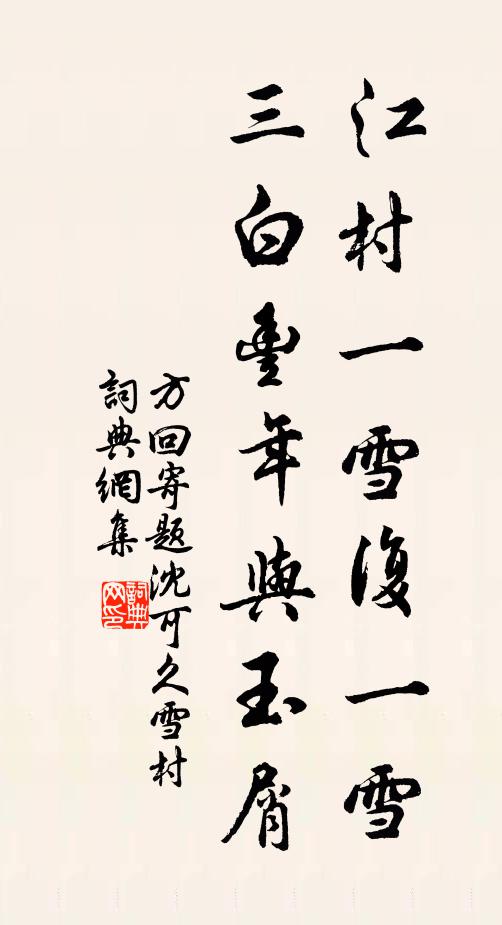 江村一雪復一雪
三白豐年與玉屑
方回寄題沈可久雪村
詞典網集
詞典網印